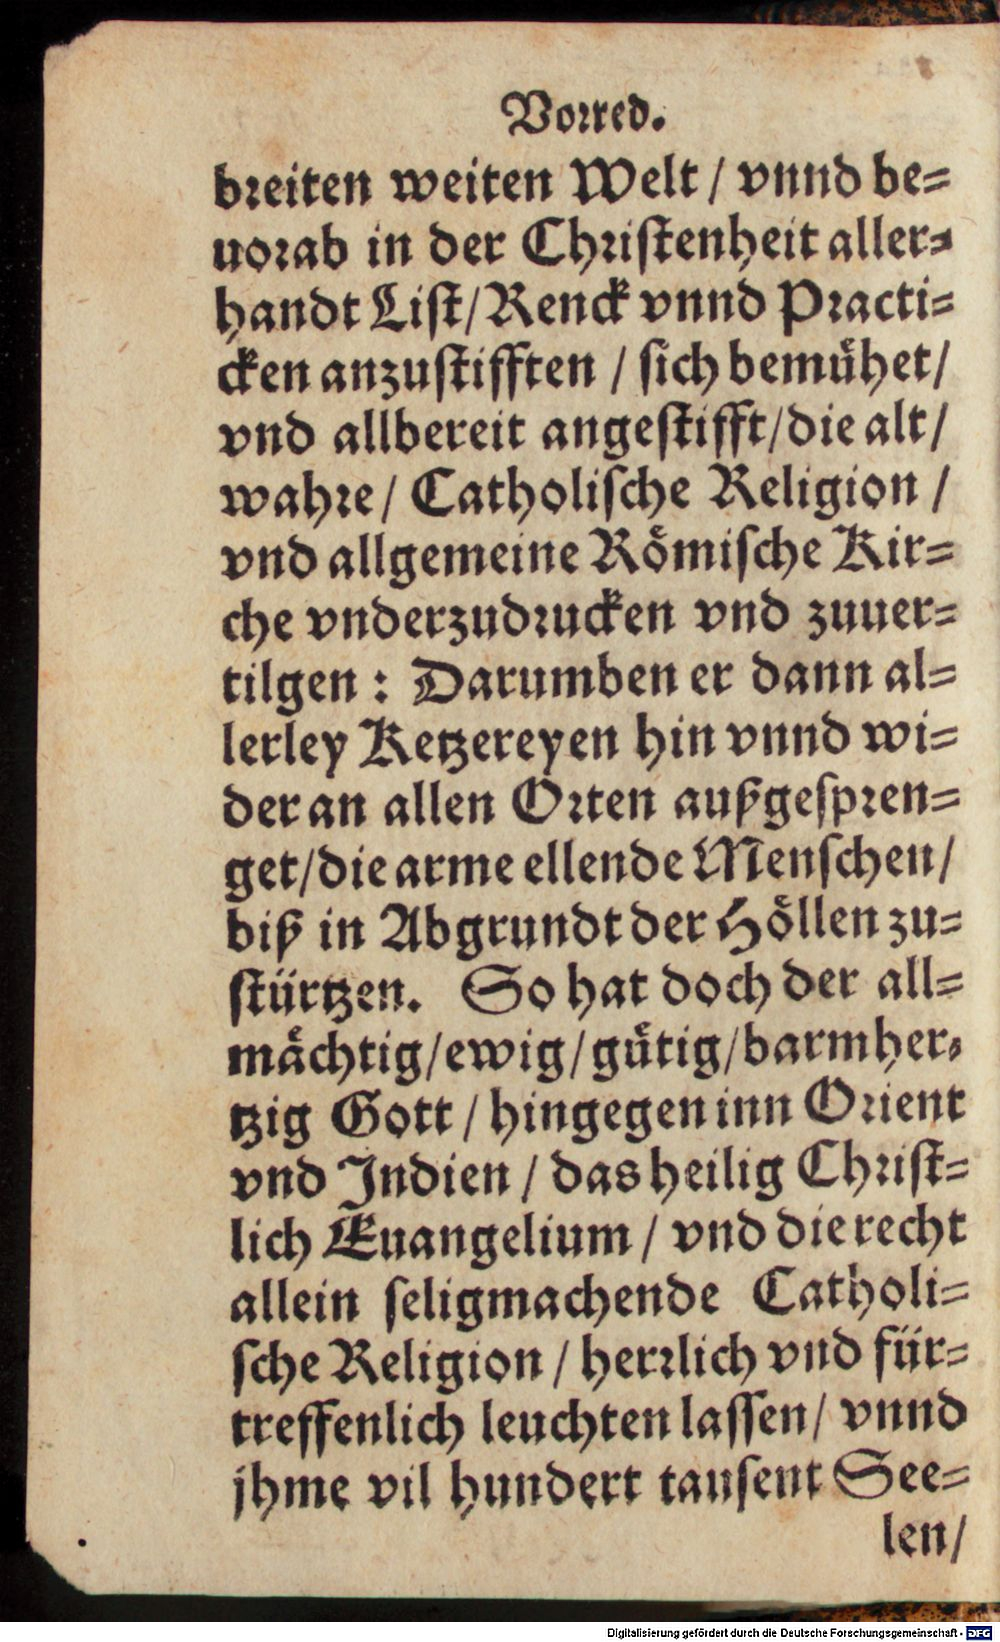 Vorred.
breiten weiten Welt / vnnd be=
uorab in der Christenheit aller=
handt List / Renck vnnd Practi=
cken anzustifften / sich bemühet /
vnd allbereit angestifft / die alt /
wahre / Catholische Religion /
vnd allgemeine Römische Kir=
che vnderzudrucken vnd zuuer=
tilgen : Darumben er dann al=
lerley Ketzereyen hin vnnd wi=
der an allen Orten außgespren=
get / die arme ellende Menschen /
biß in Abgrundt der Höllen zu=
stürtzen. So hat doch der all=
mächtig / ewig / gütig / barmher=
tzig Gott / hingegen inn Orient
vnd Indien / das heilig Christ=
lich Euangelium / vnd die recht
allein seligmachende Catholi=
sche Religion / herrlich vnd für=
treffenlich leuchten lassen / vnnd
jhme vil hundert tausent See=
len /
Digitalisierung gefördert durch die Deutsche Forschungsgemeinschaft - DFG